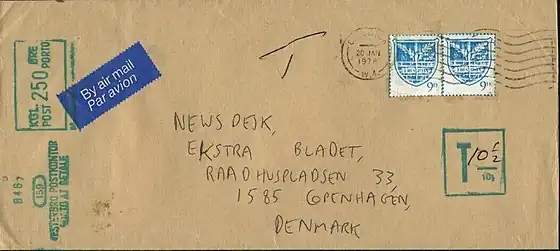 KGL. POST
250 ØRE
PORTO
By air mail
Par avion
T
20 JAN
1978
W.1
9P
9P
NEWS DESK,
EKSTRA BLADET,
RAADHUSPLADSEN 33,
1585 COPENHAGEN,
DENMARK
T 10 ½
10½
8467
159
VESTERBRO POSTKONTOR
PORTO AT BETALE